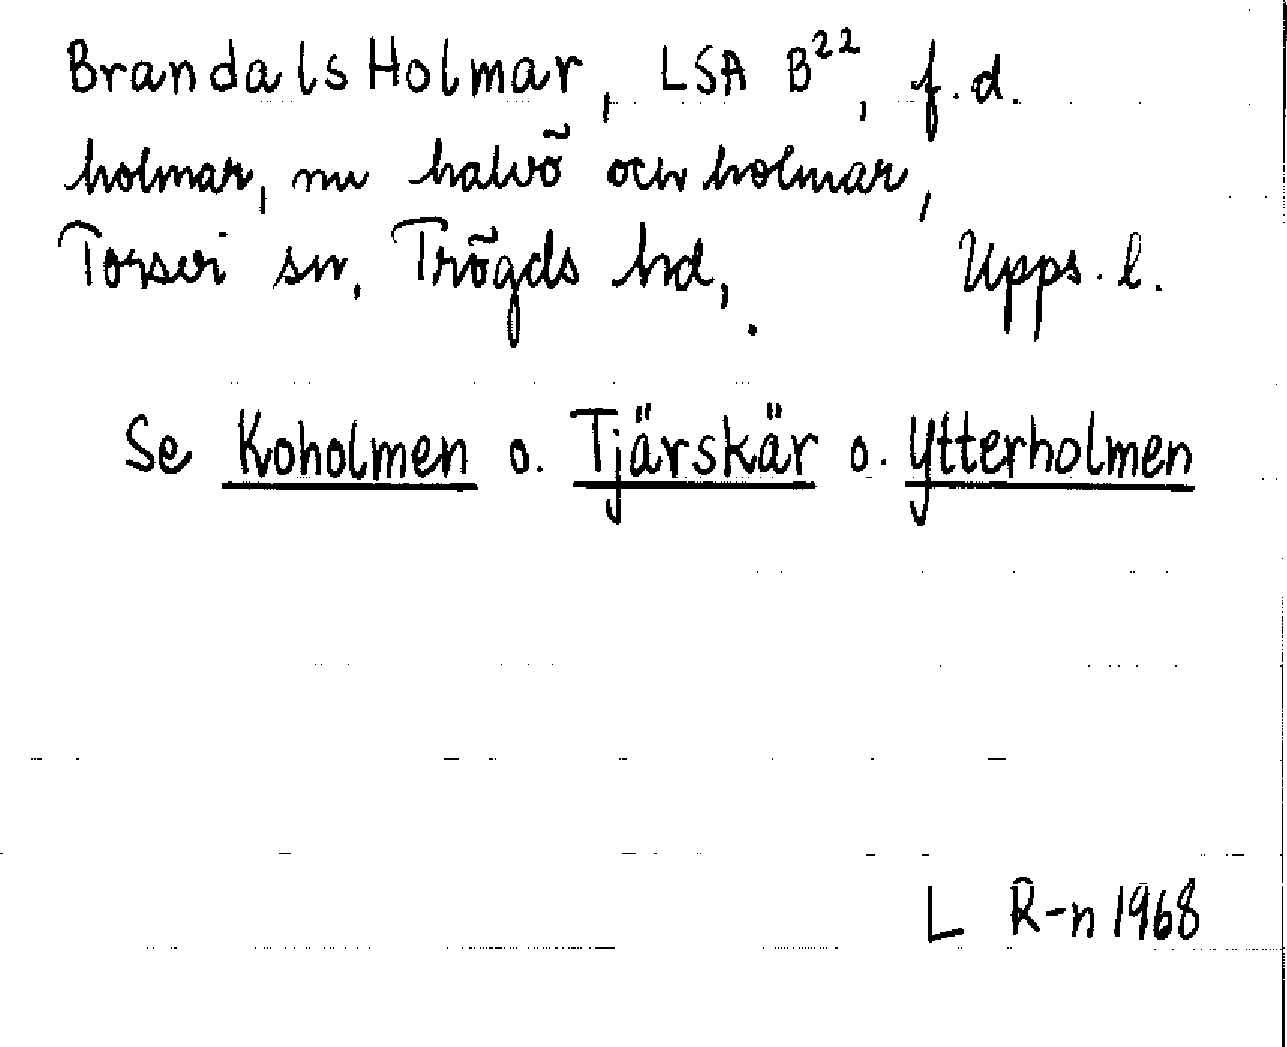 Brandals Holmar, LSA B²², f.d.
holmar, nu halvö och holmar,
Torsvi sn, Trögds hd, Upps. l.
Se Koholmen o. Tjärskär o. Ytterholmen
L R-n 1968